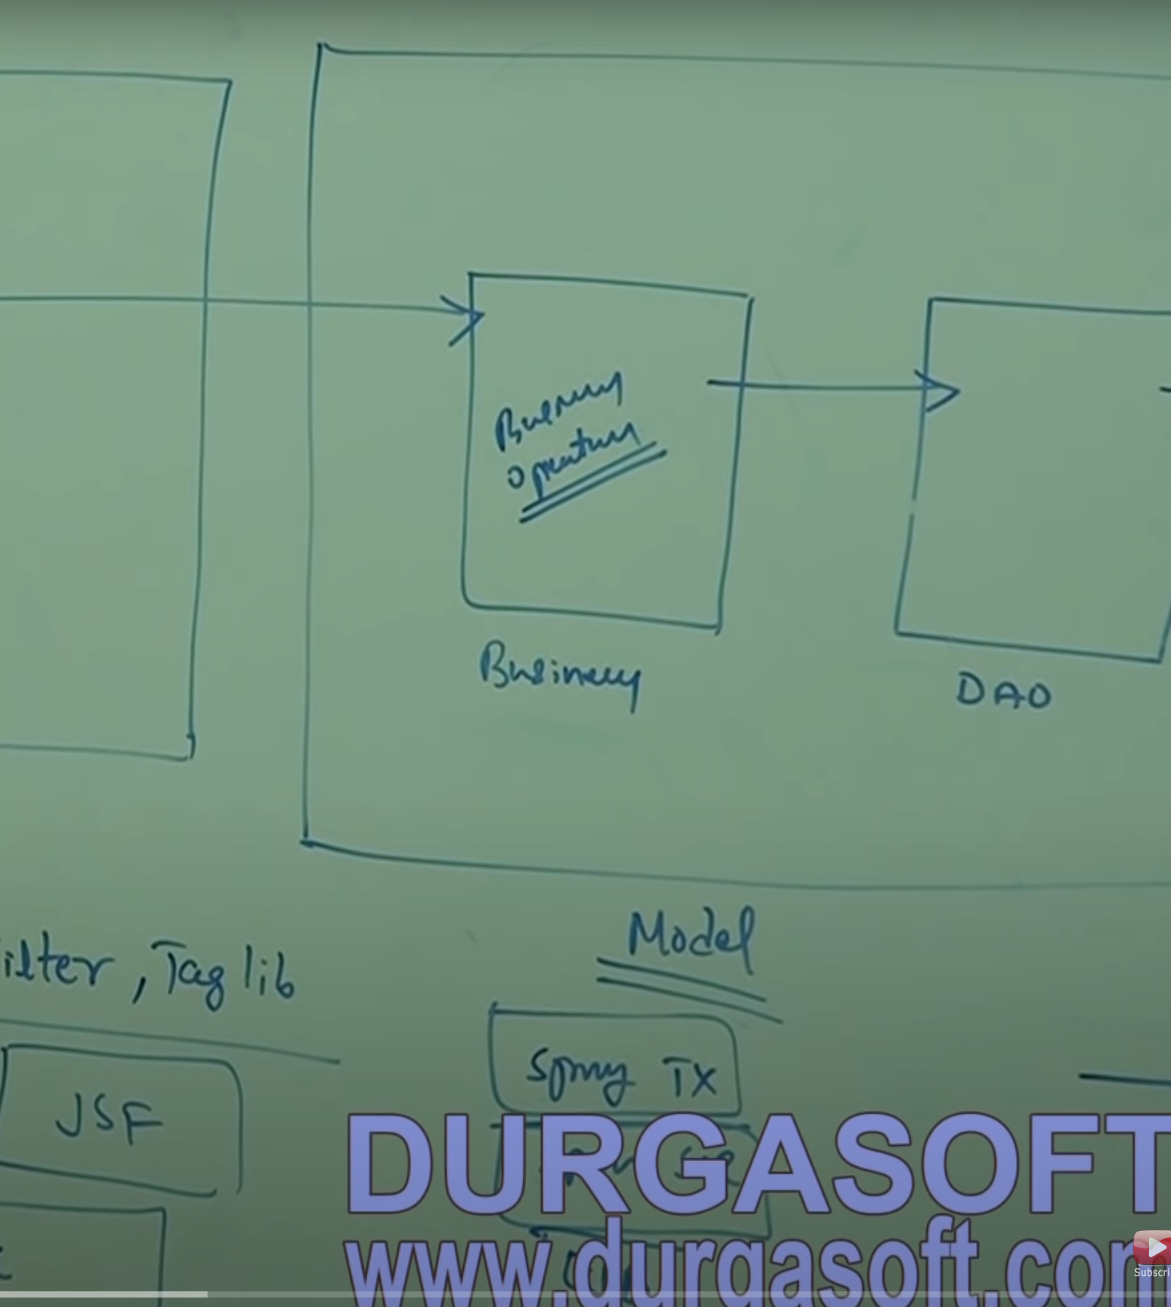 Business
Operations
Business
DAO
Model
ilter, Tag lib
Spring TX
JSF
DURGASOFT
www.durgasoft.com
Subscri